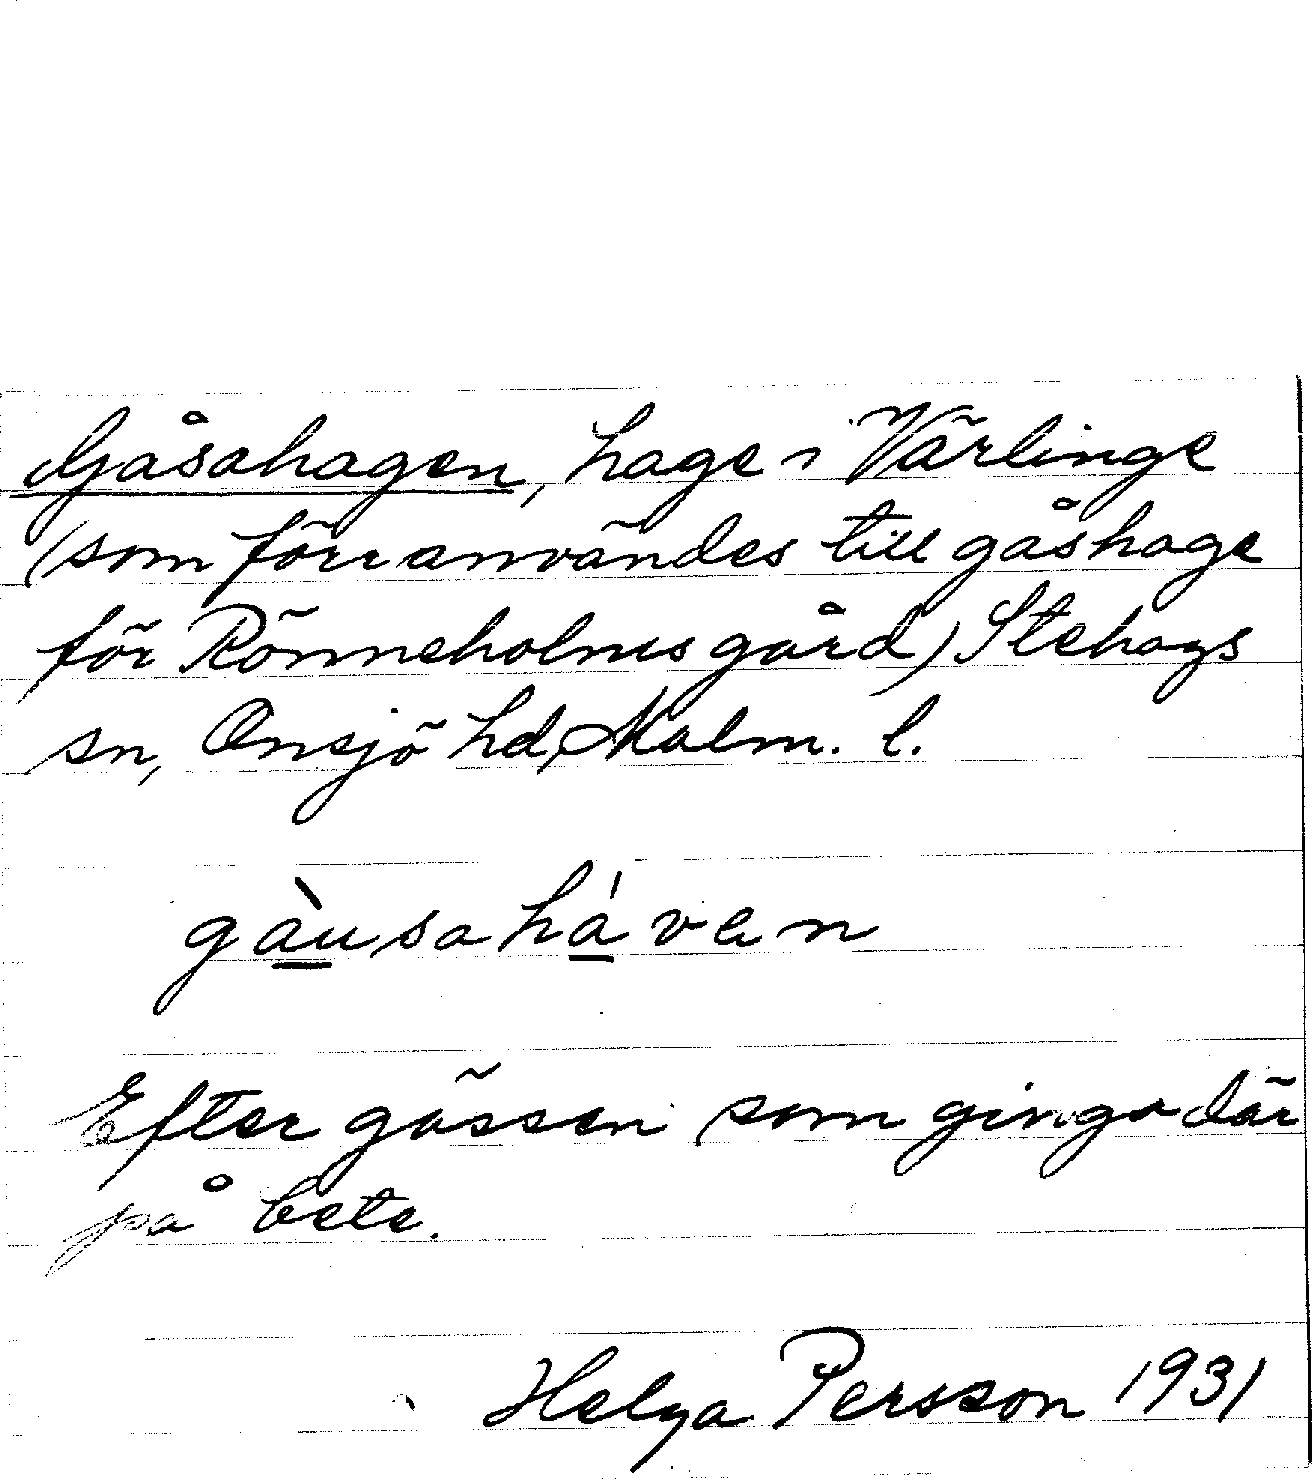 Gåsahagen, hage i Värlinge
(som förr användes till gåshage
för Rönneholms gård) Stehags
sn, Onsjö hd, Malm. l.
gàusaháven
Efter gässen som gingo där
på bete.
Helga Persson 1931